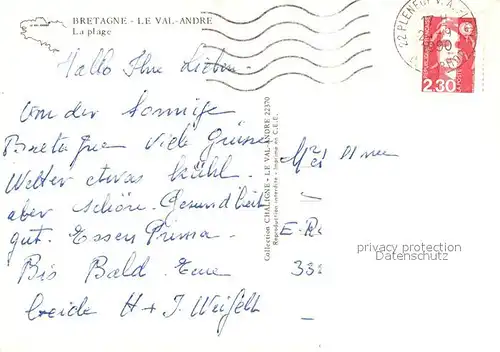 BRETAGNE - LE VAL-ANDRE
La plage
Hallo Ihr Lieben
Von der Sonnige
Bretagne Viele Grüsse
Wetter etwas kühl.
aber schön. Gesundheit
gut. Essen Prima.
Bis Bald. Eure
beide H + J. Weifelt
Collection CHALIGNE - LE VAL-ANDRE 22370
Reproduction interdite - Imprimé en C.E.E.
22 PLENEUF V. A.
17 H
1990
2,30
E-R
privacy protection
Datenschutz